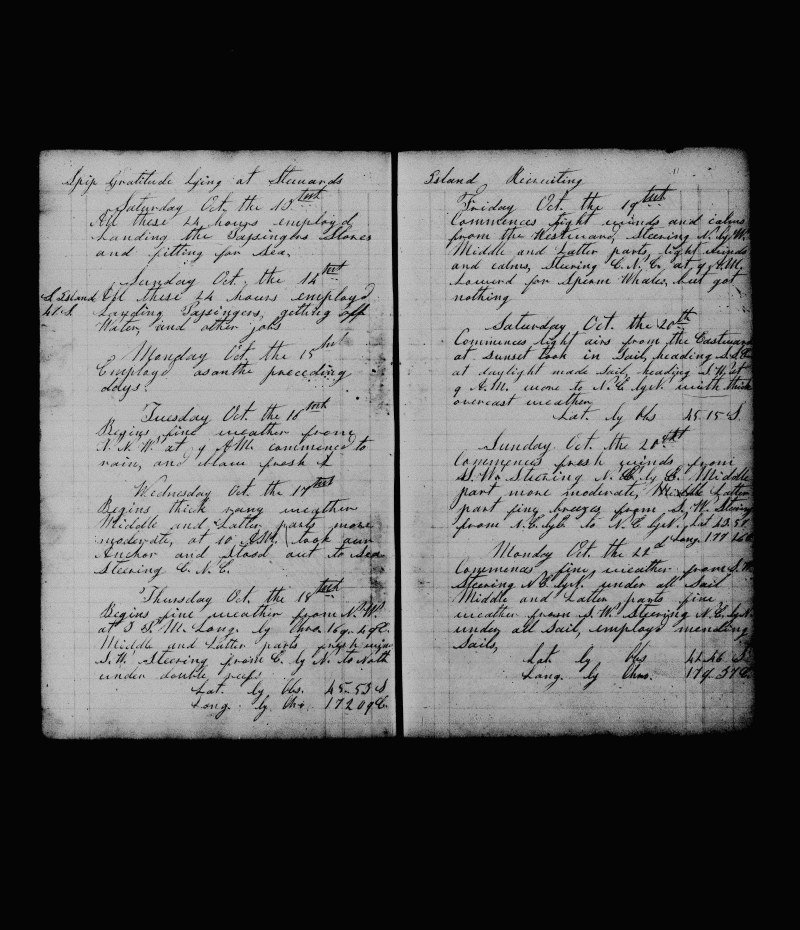 Ship Gratitude Lying at Stewards
Saturday Oct the 13
All these 24 hours employed
Landing the Passingers Stores
and fitting for Sea.
Sunday Oct. the 14
S. Island
47. S
All these 24 hours employd
Landing Passingers, getting off
Water, and other jobs
Monday Oct. the 15
Employd as on the preceding
days.
Tuesday Oct. the 16
Begins fine weather from
N. N. W. at 9 A.M. commenced to
rain, and blow fresh
Wednesday Oct. the 17
Begins thick rainy weather
Middle and Latter parts more
moderate, at 10 A.M. took our
Anchor and Stood out to Sea
Steering E. N. E.
Thursday Oct. the 18
Begins fine weather from N. W.
at 3 P. M. Long. by Chro.
Middle and Latter parts fresh winds
S. W. Steering from E. by N. to North
under double reefs
Lat. by Obs. 45-53 S
Long. by Chr. 172 09 E.
Island Recruiting
Friday Oct. the 19
Commences light winds and calms
from the Westward, Steering N. by W.
Middle and Latter parts, light winds
and calms, Steering E. N. E. at 9 A.M.
Lowerd for Sperm Whales, but got
nothing
Saturday Oct. the 20th
Commences light airs from the Eastward
at sunset took in Sail, heading
at daylight made Sail, heading S. W. at
9 A.M. wore to N. E. by N. with thick
overcast weather
Lat. by Obs 45 15 S
Sunday Oct. the 21
Commences fresh winds from
S. W. Steering N. E. by E. Middle
part more moderate, Latter
part fine breezes from S. W. Steering
from N. E. by E. to N. E. by N. Lat 43.51
Long. 177
Monday Oct. the 22d
Commences fine weather from S. W.
Steering N. E. by N. under all Sail
Middle and Latter parts fine
weather from S. W. Steering N. E. by N.
under all Sail, employd mending
Sails,
Lat by Obs 42 46 S.
Long. by Chro. 179. 37 E.